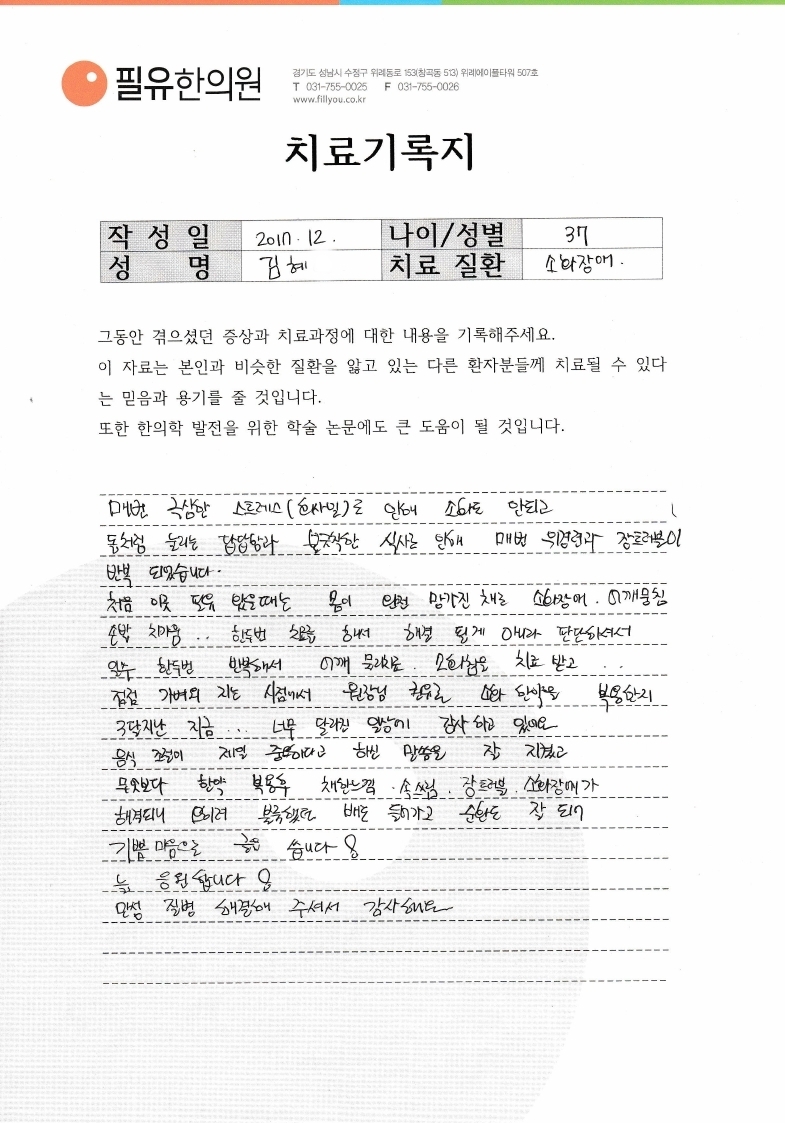 필유한의원
경기도 성남시 수정구 위례동로 153(창곡동 513) 위례에이플타워 507호
T 031-755-0025 F 031-755-0026
www.fillyou.co.kr
치료기록지
작 성 일 2017. 12. 나이/성별 37
성 명 김혜 치료 질환 소화장애.
그동안 겪으셨던 증상과 치료과정에 대한 내용을 기록해주세요.
이 자료는 본인과 비슷한 질환을 앓고 있는 다른 환자분들께 치료될 수 있다
는 믿음과 용기를 줄 것입니다.
또한 한의학 발전을 위한 학술 논문에도 큰 도움이 될 것입니다.
매번 극심한 스트레스(회사일)로 인해 소화도 안되고
돌처럼 눌리는 답답함과 불규칙한 식사로 인해 매번 위경련과 장트러블이
반복 되었습니다.
처음 이곳 왔을때는 몸이 완전 망가진 채로 소화장애. 어깨뭉침
손발 차가움.. 한두번 치료를 해서 해결 될게 아니라 판단하셔서
일주 한두번 반복해서 어깨 물리치료. 소화침을 치료 받고 ...
점점 가벼워 지는 시점에서 원장님 권유로 소화 한약을 복용한지
3달지난 지금... 너무 달라진 일상에 감사하고 있어요
음식 조절이 제일 중요하다고 하신 말씀을 잘 지켰고
무엇보다 한약 복용후 체한느낌. 속쓰림. 장트러블. 소화장애가
해결되니 오히려 볼록했던 배도 들어가고 순환도 잘 되어
기쁨 마음으로 글을 씁니다
늘 응원합니다
만성 질병 해결해 주셔서 감사해요